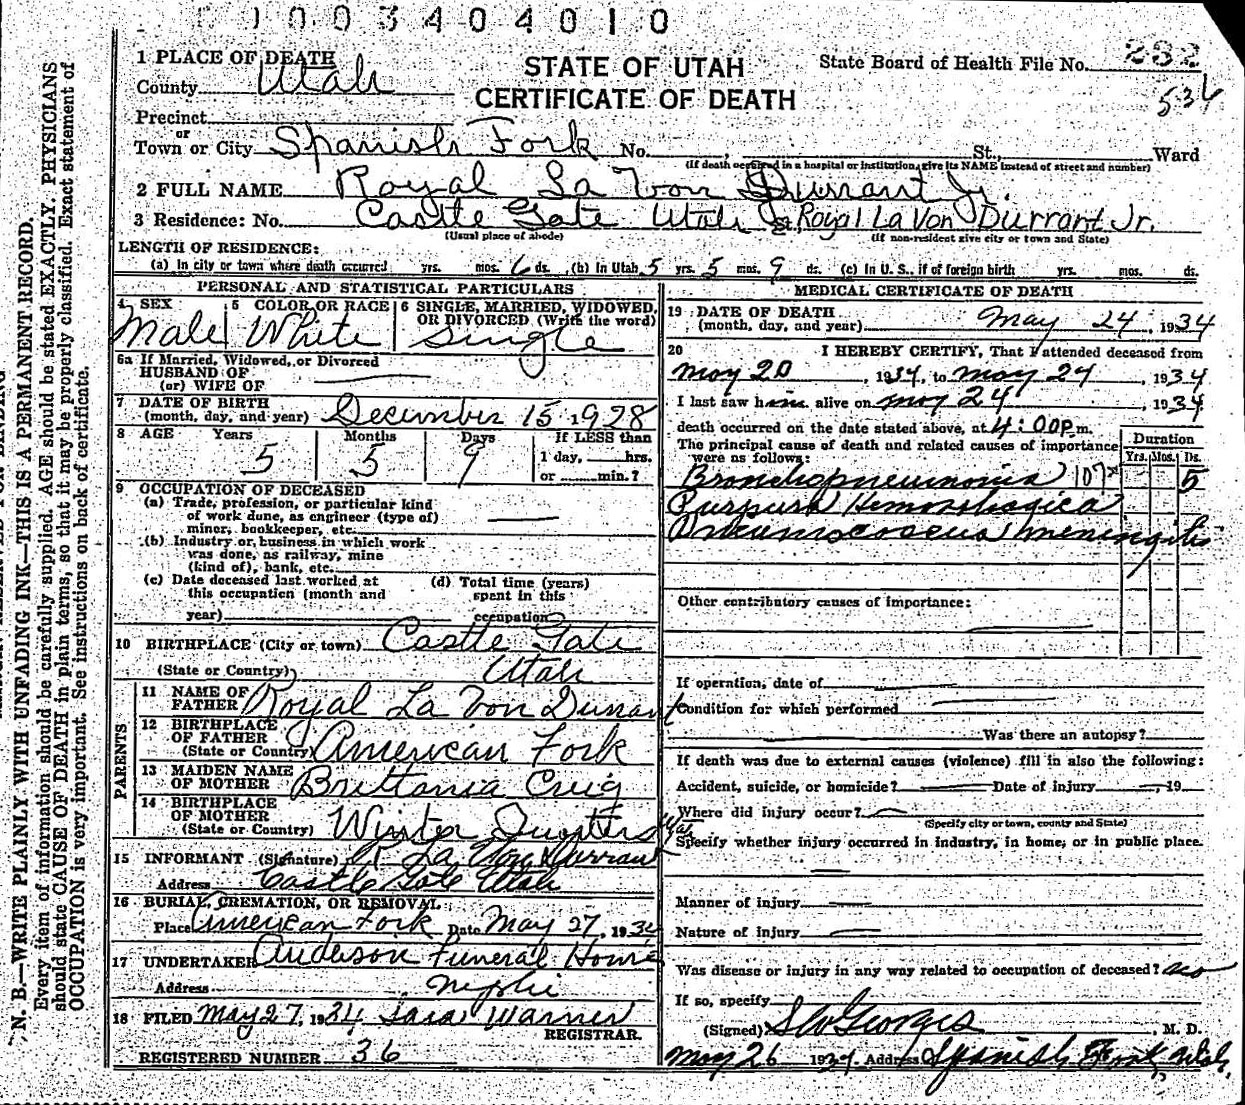 1003404010
1 PLACE OF DEATH
County Utah
STATE OF UTAH
CERTIFICATE OF DEATH
State Board of Health File No. 232
536
Precinct
or
Town or City Spanish Fork No. , St., Ward
(If death occurred in a hospital or institution, give its NAME instead of street and number)
2 FULL NAME Royal La Von Durrant Jr.
3 Residence: No. Castle Gate Utah St. Royal La Von Durrant Jr.
(Usual place of abode) (If non-resident give city or town and State)
LENGTH OF RESIDENCE:
(a) In city or town where death occurred yrs. mos. 6 ds. (b) In Utah 5 yrs. 5 mos. 9 ds. (c) In U. S., if of foreign birth yrs. mos. ds.
PERSONAL AND STATISTICAL PARTICULARS
4 SEX 5 COLOR OR RACE 6 SINGLE, MARRIED, WIDOWED,
OR DIVORCED (Write the word)
Male White Single
6a If Married, Widowed, or Divorced
HUSBAND OF
(or) WIFE OF
7 DATE OF BIRTH
(month, day, and year) December 15 1928
8 AGE Years Months Days If LESS than
5 5 9 1 day, hrs.
or min.?
9 OCCUPATION OF DECEASED
(a) Trade, profession, or particular kind
of work done, as engineer (type of)
miner, bookkeeper, etc.
(b) Industry or business in which work
was done, as railway, mine
(kind of), bank, etc.
(c) Date deceased last worked at (d) Total time (years)
this occupation (month and spent in this
year) occupation
10 BIRTHPLACE (City or town) Castle Gate
(State or Country) Utah
PARENTS
11 NAME OF
FATHER Royal La Von Durrant
12 BIRTHPLACE
OF FATHER
(State or Country) American Fork
13 MAIDEN NAME
OF MOTHER Brittania Crig
14 BIRTHPLACE
OF MOTHER
(State or Country) Winter Quarters Utah
15 INFORMANT (Signature) R La Von Durrant
Address Castle Gate Utah
16 BURIAL, CREMATION, OR REMOVAL
Place American Fork Date May 27, 1934
17 UNDERTAKER Anderson Funeral Home
Address
18 FILED May 27, 1934 Sara Warner
REGISTRAR.
REGISTERED NUMBER 36
MEDICAL CERTIFICATE OF DEATH
19 DATE OF DEATH
(month, day, and year) May 24, 1934
20 I HEREBY CERTIFY, That I attended deceased from
May 20, 1934, to May 24, 1934
I last saw him alive on May 24, 1934
death occurred on the date stated above, at 4:00 P.m.
The principal cause of death and related causes of importance
were as follows:
Duration
Yrs. Mos. Ds.
Bronchopneumonia 107 5
Purpura Hemorrhagica
Pneumococcus meningitis
Other contributory causes of importance:
If operation, date of
Condition for which performed
Was there an autopsy?
If death was due to external causes (violence) fill in also the following:
Accident, suicide, or homicide? Date of injury , 19
Where did injury occur?
(Specify city or town, county and State)
Specify whether injury occurred in industry, in home, or in public place.
Manner of injury
Nature of injury
Was disease or injury in any way related to occupation of deceased? no
If so, specify
(Signed) Georges, M. D.
May 26 1934 Address Spanish Fork, Utah.
N. B.—WRITE PLAINLY WITH UNFADING INK—THIS IS A PERMANENT RECORD.
Every item of information should be carefully supplied. AGE should be stated EXACTLY. PHYSICIANS
should state CAUSE OF DEATH in plain terms, so that it may be properly classified. Exact statement of
OCCUPATION is very important. See instructions on back of certificate.